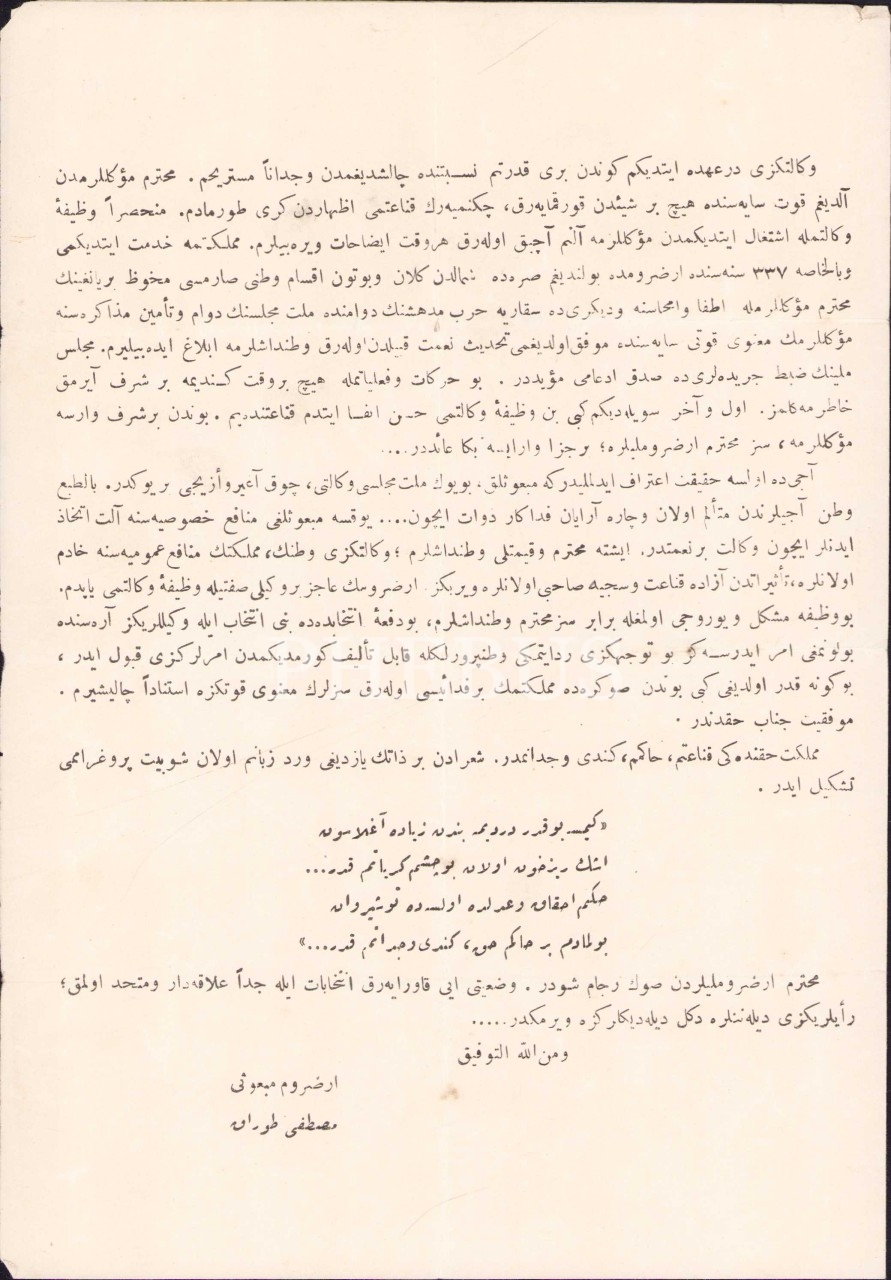 وكالتكزی درعهده ایتدیكم كوندن بری قدرتم نسبتنده چالشدیغمدن وجداناً مستریحم . محترم مؤكللرمدن
آلدیغم قوت سایه‌سنده هیچ بر شیئدن قورقمایه‌رق، چكنمیه‌رك قناعتمی اظهاردن كری طورمادم. منحصراً وظیفهٔ
وكالتمله اشتغال ایتدیكمدن مؤكللرمه آلنم آچیق اوله‌رق هروقت ایضاحات ویره‌بیلرم. مملكتمه خدمت ایتدیكمی
وبالخاصه ٣٣٧ سنه‌سنده ارضرومده بولندیغم صره‌ده شمالدن كلان وبوتون اقسام وطنی صارمسی محظوظ بریانغینك
محترم مؤكللرمله اطفا وامحاسنه ودیكری‌ده سقاریه حرب مدهشنك دوامنده ملت مجلسنك دوام وتأمین مذاكره‌سنه
مؤكللرمك معنوی قوتی سایه‌سنده موفق اولدیغمی تحدیث نعمت قبیلدن اوله‌رق وطنداشلرمه ابلاغ ایده‌بیلیرم. مجلس
ملینك ضبط جریده‌لری‌ده صدق ادعامی مؤیددر . بو حركات وفعلیاتمله هیچ بروقت كندیمه بر شرف آیرمق
خاطرمه كلمز. اول و آخر سویله‌دیكم كبی بن وظیفهٔ وكالتمی حسن ایفا ایتدم قناعتنده‌یم . بوندن برشرف وارسه
مؤكللرمه، سز محترم ارضروملیلره؛ برجزا وارایسه بكا عائددر....
آجی‌ده اولسه حقیقت اعتراف ایدلملیدركه مبعوثلق، بویوك ملت مجلسی وكالتی، چوق آغیر وأزیجی بر یوكدر. بالطبع
وطن آجیلرندن متألم اولان وچاره آرایان فداكار ذوات ایچون.... یوقسه مبعوثلغی منافع خصوصیه‌سنه آلت اتخاذ
ایدنلر ایچون وكالت برنعمتدر. ایشته محترم وقیمتلی وطنداشلرم ؛ وكالتكزی وطنك، مملكتك منافع عمومیه‌سنه خادم
اولانلره، تأثیراتدن آزاده قناعت وسجیه صاحبی اولانلره ویریكز. ارضرومك عاجز بر وكیلی صفتیله وظیفهٔ وكالتمی یاپدم.
بووظیفه مشكل و یوروجی اولمغله برابر سز محترم وطنداشلرم، بودفعهٔ انتخابده‌ده بنی انتخاب ایله وكیللریكز آره‌سنده
بولونمغی امر ایدرسه‌كز بو توجهكزی ردایتمكی وطنپرورلكله قابل تألیف كورمدیكمدن امرلركزی قبول ایدر ،
بوكونه قدر اولدیغی كبی بوندن صوكره‌ده مملكتمك برفدائیسی اوله‌رق سزلرك معنوی قوتكزه استناداً چالیشیرم .
موفقیت جناب حقدندر .
مملكت حقنده‌كی قناعتم، حاكمم، كندی وجدانمدر. شعرادن بر ذاتك یازدیغی ورد زبانم اولان شوبیت پروغرامی
تشكیل ایدر .
«كیمسه بوقدر دردیمه بندن زیاده آغلاسون
اشك ریزخون اولان بو چشم كریانم قدر...
حكم احقاق وعدلده اولسه‌ده نوشیروان
بولمادم بر حاكم حق، كندی وجدانم قدر...»
محترم ارضروملیلردن صوك رجام شودر . وضعیتی ایی قاورایه‌رق انتخابات ایله جداً علاقه‌دار ومتحد اولمق؛
رأیلریكزی دیله‌ننلره دكل دیله‌دیكلركزه ویرمكدر.....
ومن الله التوفیق
ارضروم مبعوثی
مصطفی طوراق